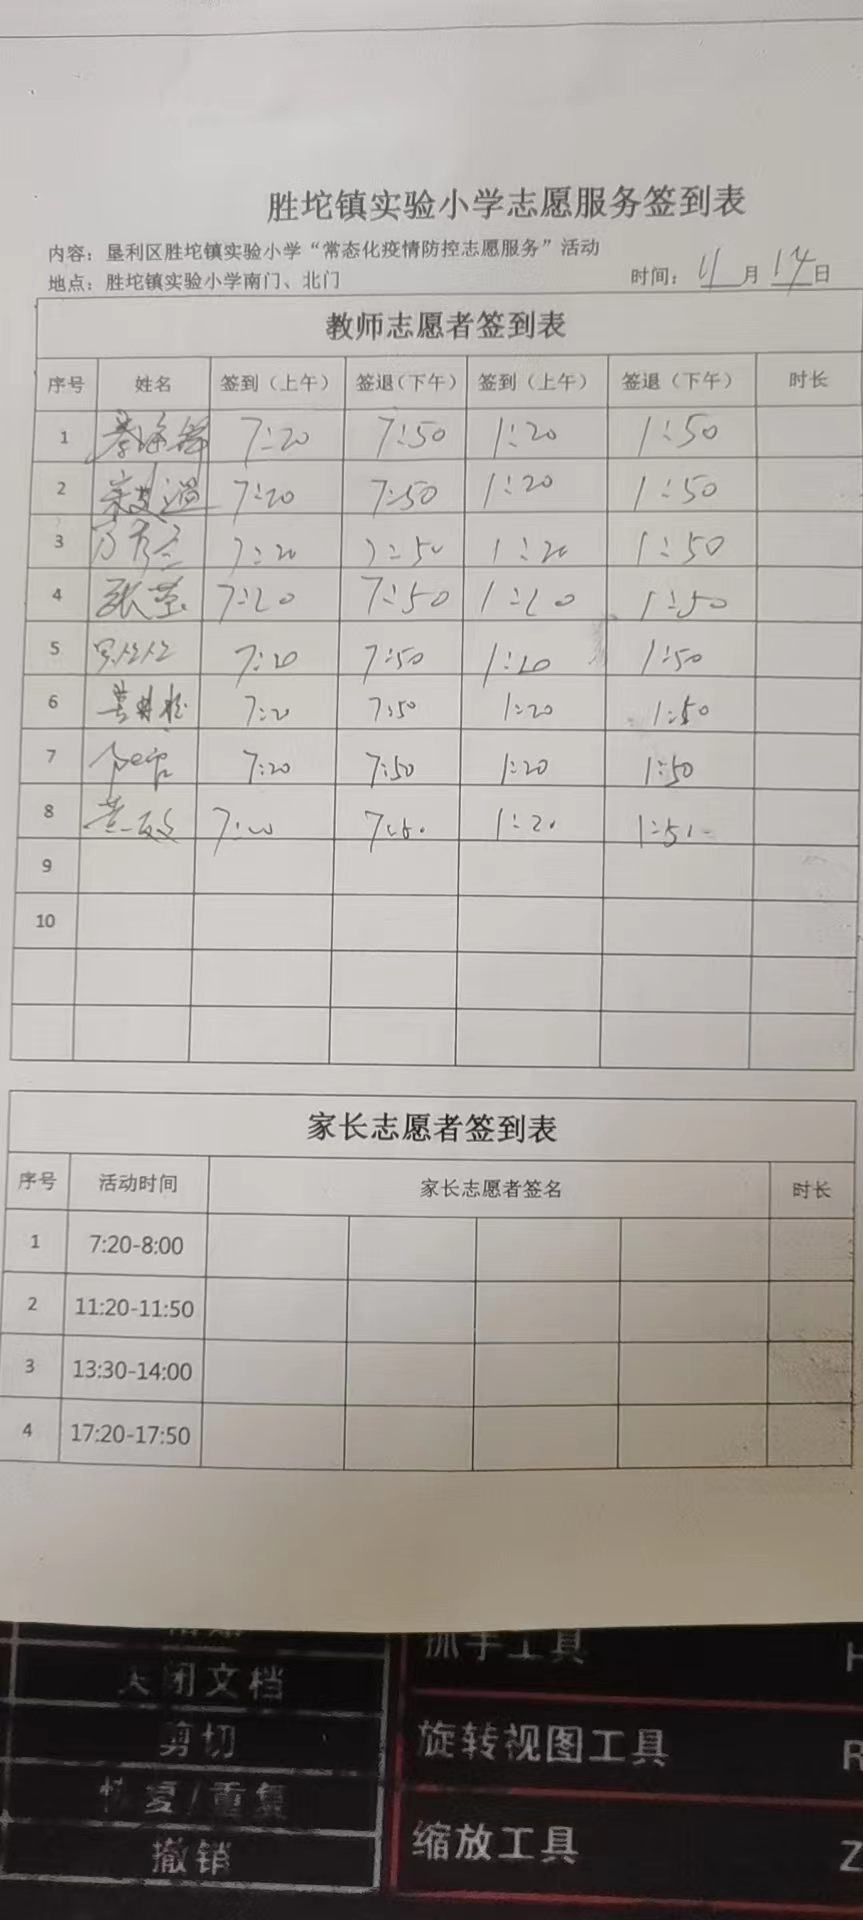 胜坨镇实验小学志愿服务签到表
内容：垦利区胜坨镇实验小学“常态化疫情防控志愿服务”活动
地点：胜坨镇实验小学南门、北门 时间：11月14日
教师志愿者签到表
序号 姓名 签到（上午） 签退（下午） 签到（上午） 签退（下午） 时长
1 7:20 7:50 1:20 1:50
2 7:20 7:50 1:20 1:50
3 7:20 7:50 1:20 1:50
4 张莹 7:20 7:50 1:20 1:50
5 7:20 7:50 1:20 1:50
6 7:20 7:50 1:20 1:50
7 7:20 7:50 1:20 1:50
8 1:20
9
10
家长志愿者签到表
序号 活动时间 家长志愿者签名 时长
1 7:20-8:00
2 11:20-11:50
3 13:30-14:00
4 17:20-17:50
关闭文档
剪切
恢复/重复
撤销
抓手工具 H
旋转视图工具 R
缩放工具 Z